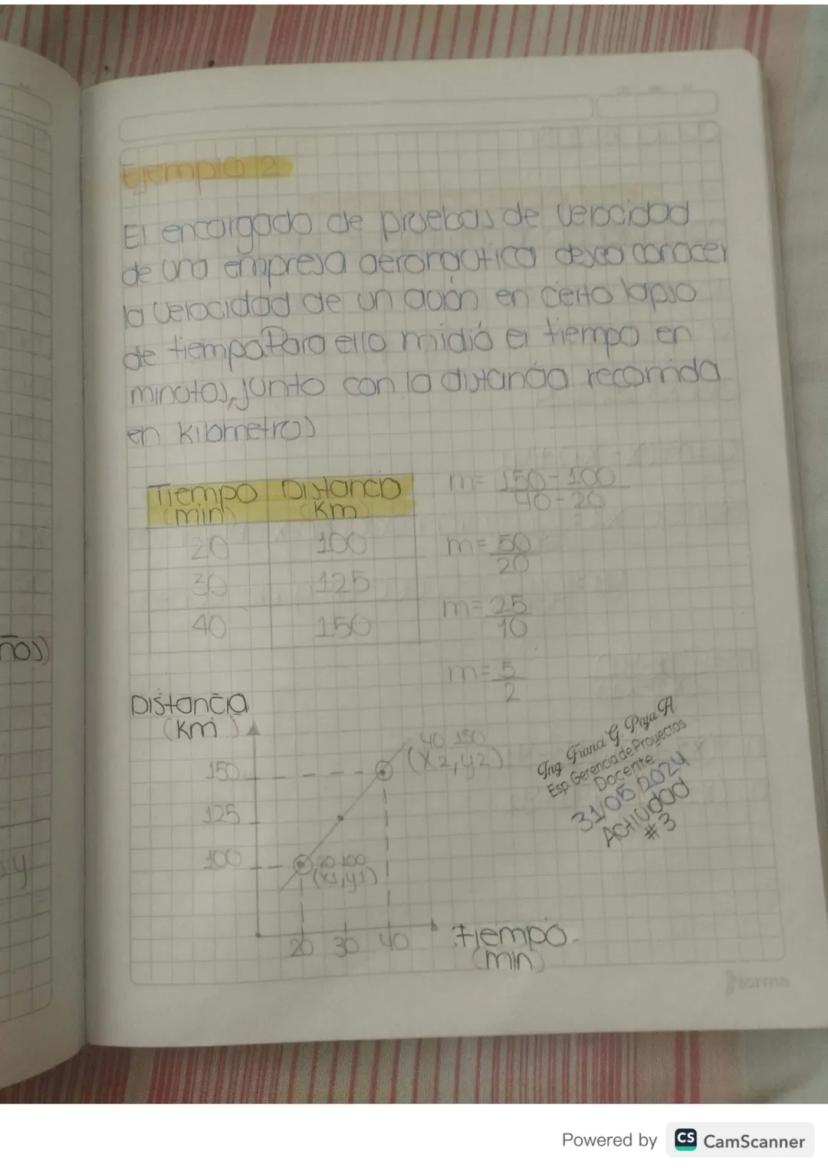 Ejemplo 2
El encargado de pruebas de velocidad
de una empresa aeronautica desea conocer
la velocidad de un avión en cierto lapso
de tiempo. Para ello midió el tiempo en
minutos, junto con la distancia recorrida
en kilometros
Tiempo (min) Distancia Km
20 100
30 125
40 150
m= 150-100 / 40-20
m= 50/20
m= 25/10
m= 5/2
Distancia
(Km)
150
125
100
40 150
(x2,y2)
20 100
(x1,y1)
20 30 40
tiempo
(min)
Esp. Gerencia de Proyectos
Docente
31/05/2024
Actividad
#3
ños)
y
norma
Powered by CS CamScanner